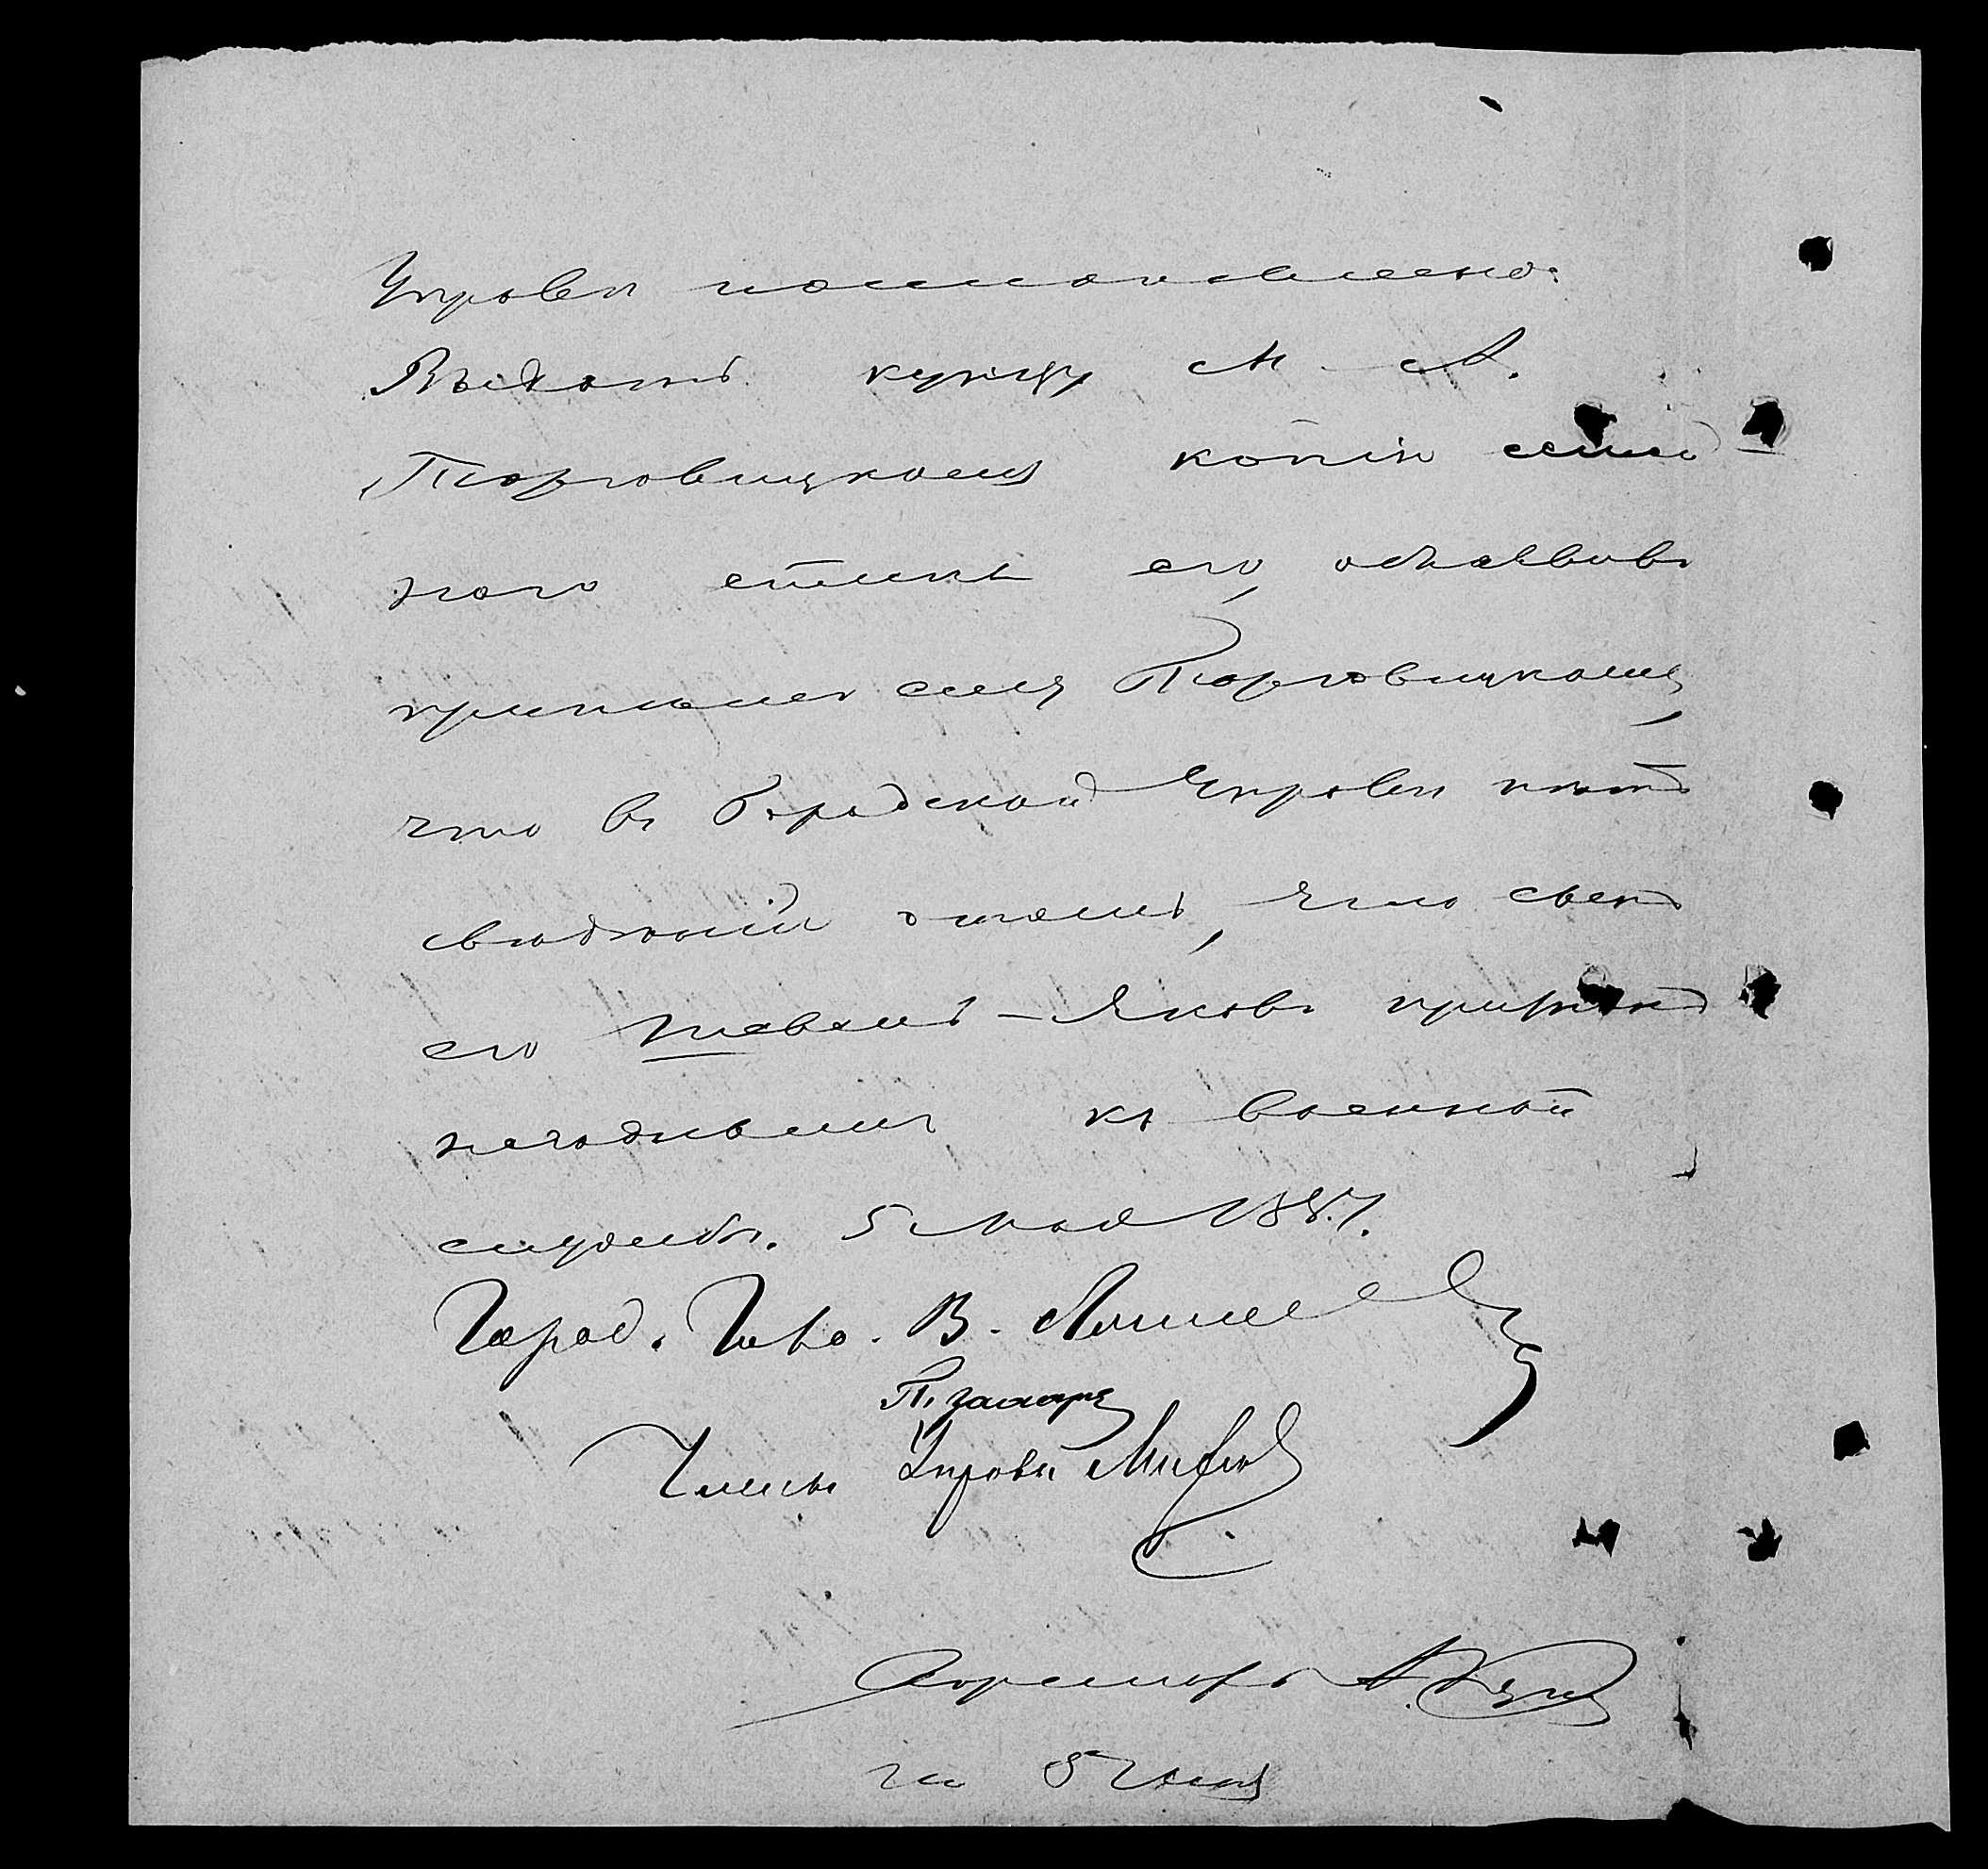 Управѣ постановлено:
Выдать купцу М. А.
Торговицкому копію семей
ного списка его, объявивъ
при томъ ему Торговицкому,
что въ Городской Управѣ нѣтъ
свѣдѣній о томъ, что сынъ
его Шевель-Яковъ признанъ
негоднымъ къ военной
службѣ. 5 Мая 1887.
Город. Голова. В.
Члены Управы
на 5 Мая